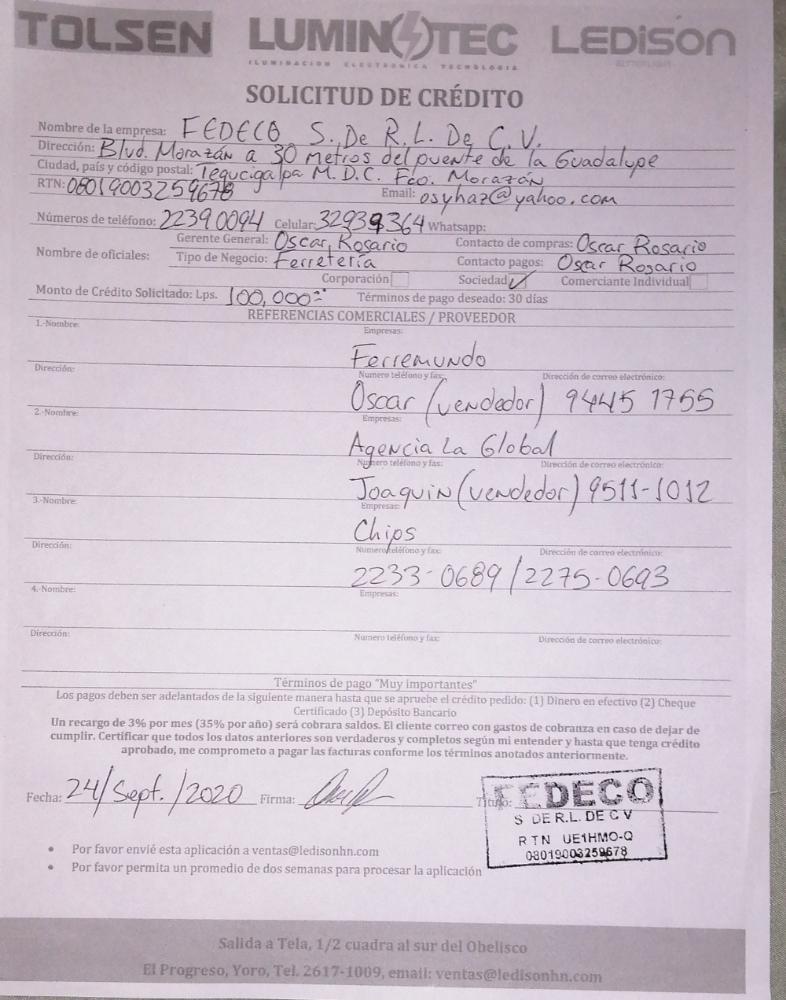 TOLSEN LUMINOTEC LEDISON
ILUMINACION ELECTRONICA TECNOLOGIA
SOLICITUD DE CRÉDITO
Nombre de la empresa: FEDECO S. De R.L. De C.V.
Dirección: Blvd. Morazán a 30 metros del puente de la Guadalupe
Ciudad, país y código postal: Tegucigalpa M.D.C. Fco. Morazón
RTN: 08019003259678 Email: osyhaz@yahoo.com
Números de teléfono: 2239 0094 Celular: 32939364 Whatsapp:
Nombre de oficiales: Gerente General: Oscar Rosario Contacto de compras: Oscar Rosario
Tipo de Negocio: Ferretería Contacto pagos: Oscar Rosario
Corporación Sociedad ✓ Comerciante Individual
Monto de Crédito Solicitado: Lps. 100,000 Términos de pago deseado: 30 días
REFERENCIAS COMERCIALES / PROVEEDOR
1.-Nombre: Empresas:
Ferremundo
Dirección: Numero teléfono y fax: Dirección de correo electrónico:
Oscar (vendedor) 9445 1755
2.-Nombre: Empresas:
Agencia La Global
Dirección: Número teléfono y fax: Dirección de correo electrónico:
Joaquin (vendedor) 9511-1012
3.-Nombre: Empresas:
Chips
Dirección: Numero teléfono y fax: Dirección de correo electrónico:
2233-0689 / 2275-0693
4.-Nombre: Empresas:
Dirección: Numero teléfono y fax: Dirección de correo electrónico:
Términos de pago "Muy importantes"
Los pagos deben ser adelantados de la siguiente manera hasta que se apruebe el crédito pedido: (1) Dinero en efectivo (2) Cheque
Certificado (3) Depósito Bancario
Un recargo de 3% por mes (35% por año) será cobrara saldos. El cliente correo con gastos de cobranza en caso de dejar de
cumplir. Certificar que todos los datos anteriores son verdaderos y completos según mi entender y hasta que tenga crédito
aprobado, me comprometo a pagar las facturas conforme los términos anotados anteriormente.
Fecha: 24/Sept./2020 Firma: Título:
FEDECO
S DE R.L. DE C V
RTN UE1HMO-Q
08019003259678
• Por favor envié esta aplicación a ventas@ledisonhn.com
• Por favor permita un promedio de dos semanas para procesar la aplicación
Salida a Tela, 1/2 cuadra al sur del Obelisco
El Progreso, Yoro, Tel. 2617-1009, email: ventas@ledisonhn.com